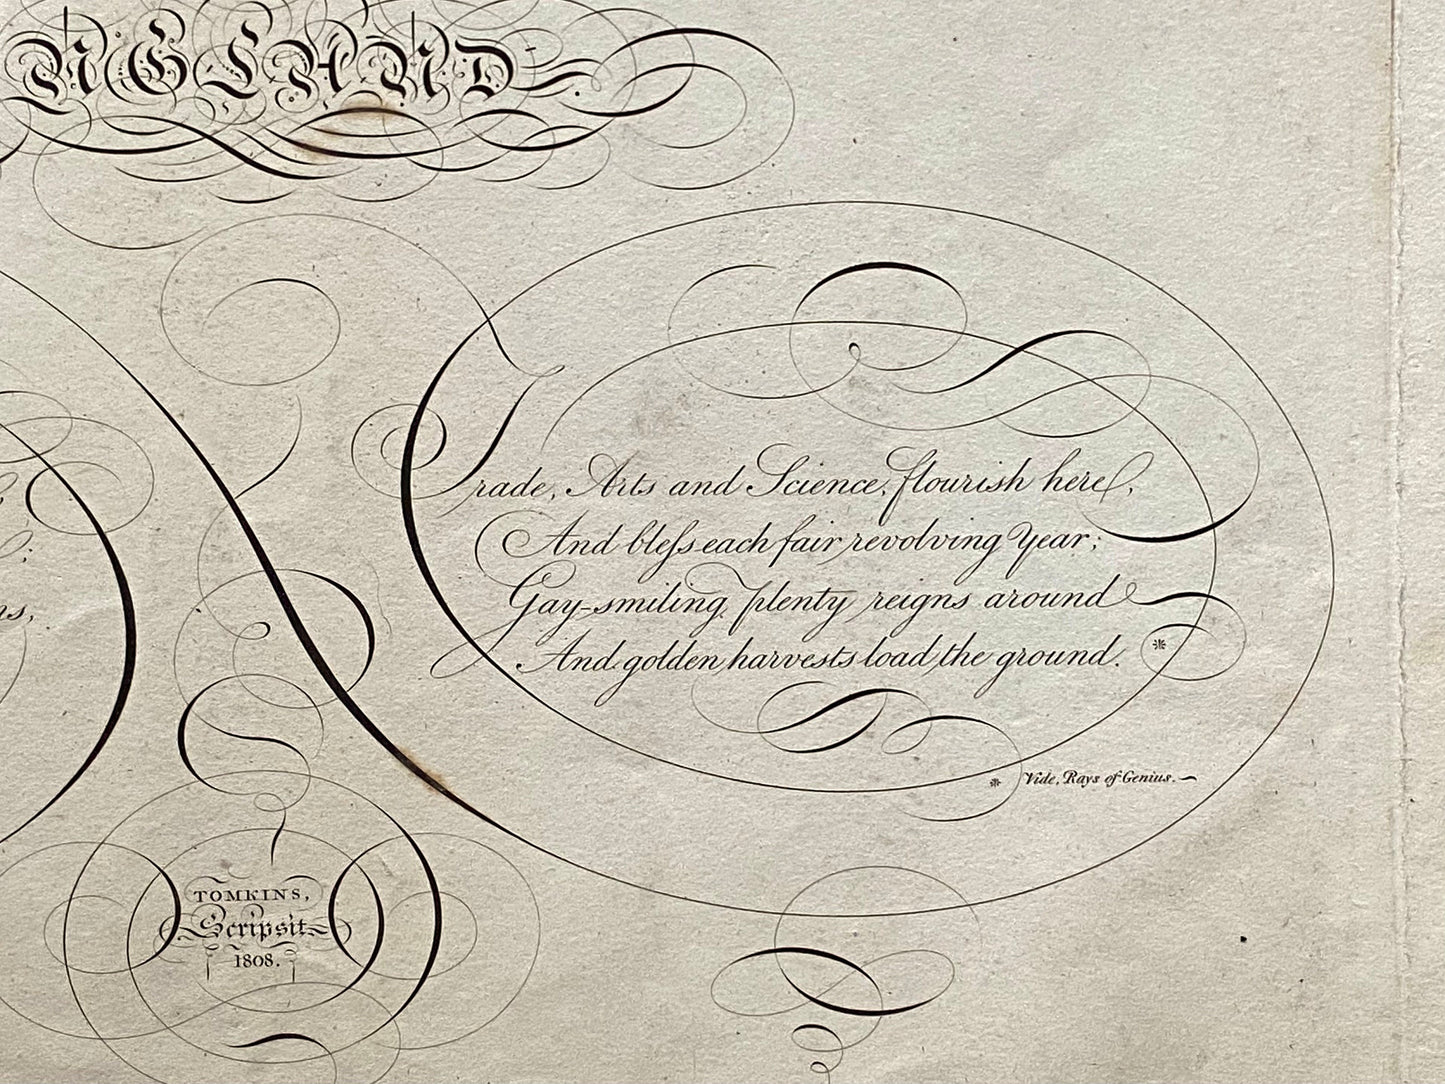 NGLAND.
Trade, Arts and Science, flourish here,
And bleſs each fair revolving Year;
Gay-smiling plenty reigns around
And golden harvests load the ground. *
* Vide, Rays of Genius.
TOMKINS,
Scripsit
1808.